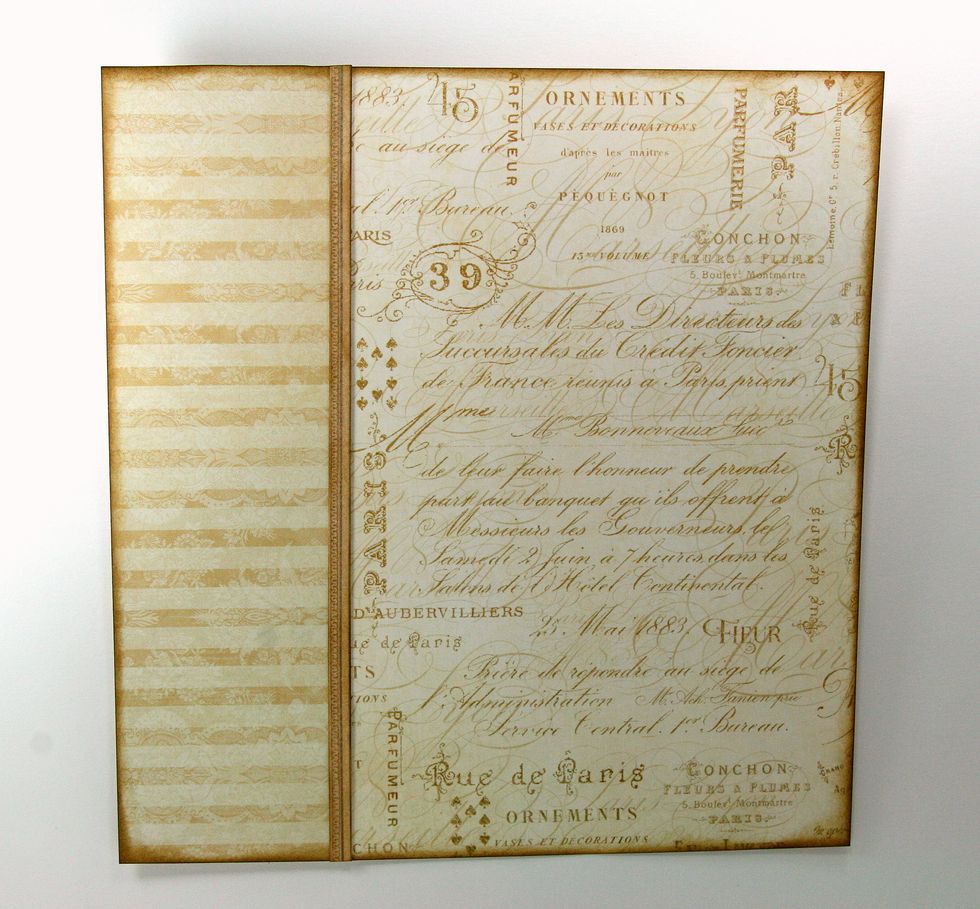 1883.
45
PARFUMEUR
ORNEMENTS
VASES ET DÉCORATIONS
d'après les maîtres
par
PÉQUÉGNOT
1869
15me VOLUME
PARFUMERIE
PAR
Lemoine, 5, r. Crébillon Nantes
au siège de
1er Bureau.
PARIS
39
GONCHON
FLEURS & PLUMES
5. Boulevt Montmartre
PARIS.
M.M. Les Directeurs des
Succursales du Crédit Foncier
de France réunis à Paris prient
Mme
Bonneveaux
de leur faire l'honneur de prendre
part au banquet qu'ils offrent à
Messieurs les Gouverneurs, le
Samedi 2 Juin à 7 heures, dans les
Salons de l'Hôtel Continental.
45
R
PARIS
Rue de Paris
D'AUBERVILLIERS
25 Mai 1883.
FLEUR
ue de Paris
Prière de répondre au siège de
l'Administration
Service Central. 1er Bureau.
TS
IONS
PARFUMEUR
Rue de Paris
ORNEMENTS
VASES ET DÉCORATIONS
GONCHON
FLEURS & PLUMES
5. Boulevt Montmartre
PARIS.
CHON